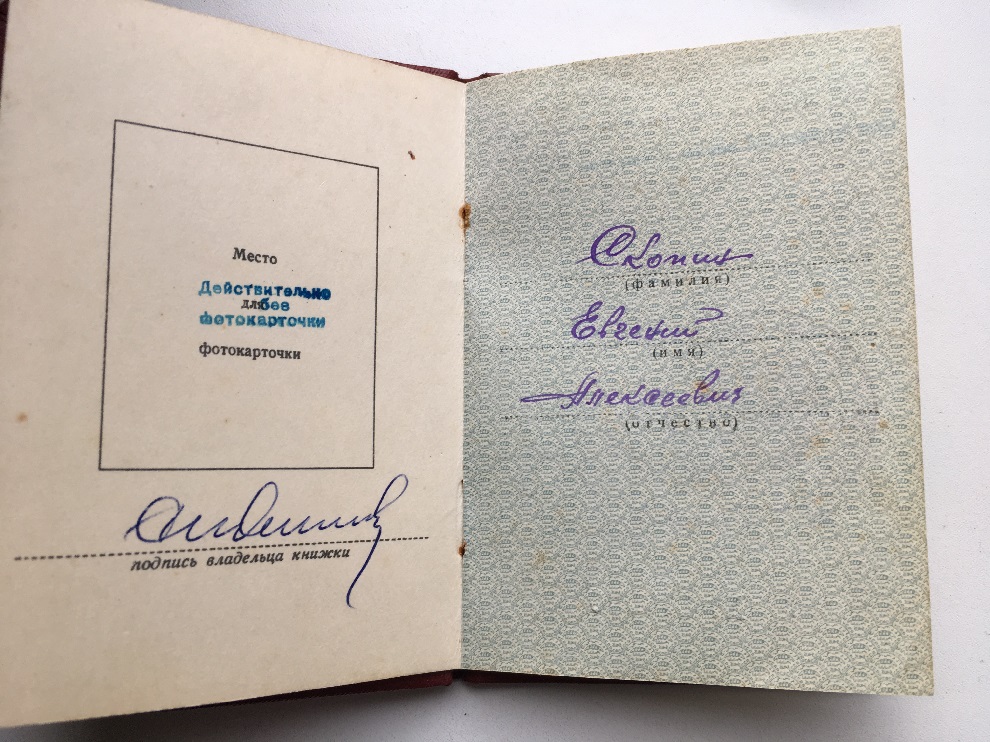 Место
Действительно
для без
фотокарточки
фотокарточки
подпись владельца книжки
Скопин
(фамилия)
Евгений
(имя)
Алексеевич
(отчество)